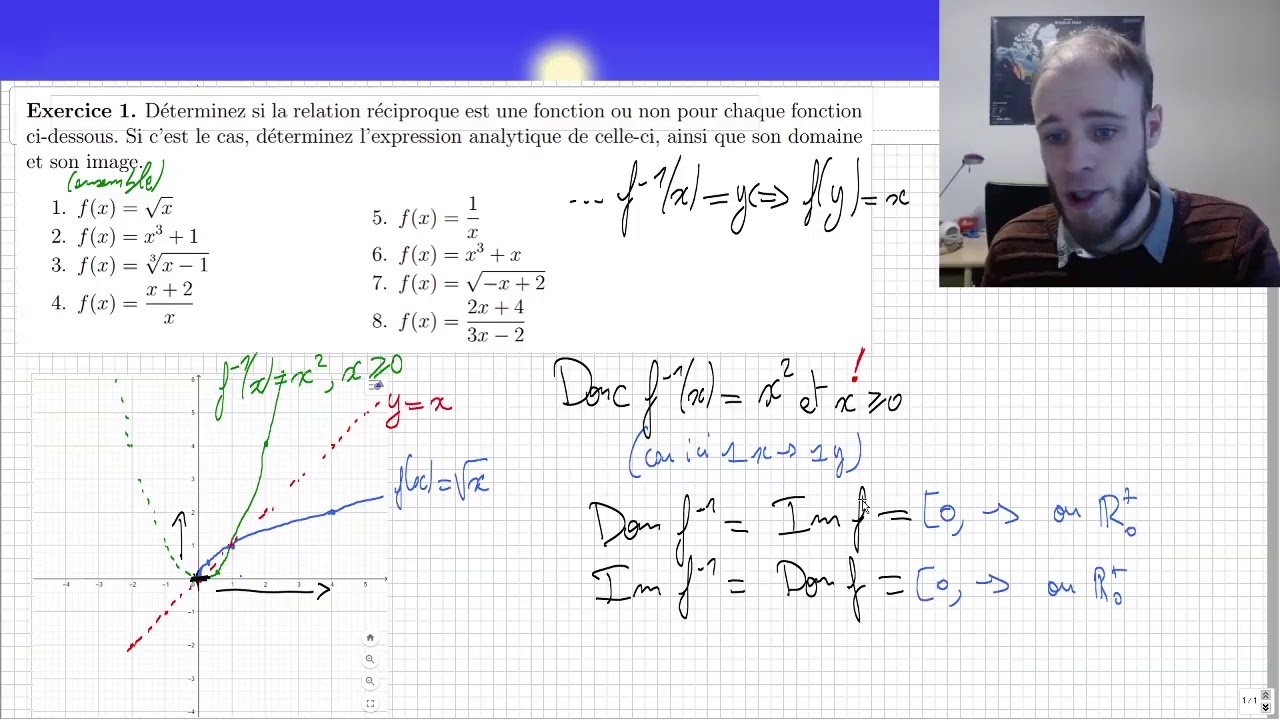 Exercice 1. Déterminez si la relation réciproque est une fonction ou non pour chaque fonction
ci-dessous. Si c'est le cas, déterminez l'expression analytique de celle-ci, ainsi que son domaine
et son image.
(ensemble)
1. f(x) = √x
2. f(x) = x³ + 1
3. f(x) = ∛(x − 1)
4. f(x) = (x + 2)/x
5. f(x) = 1/x
6. f(x) = x³ + x
7. f(x) = √(−x + 2)
8. f(x) = (2x + 4)/(3x − 2)
... f⁻¹(x) = y ⇔ f(y) = x
f⁻¹(x) = x², x ≥ 0
y = x
f(x) = √x
6
5
4
3
2
1
−4 −3 −2 −1 1 2 3 4 5
−1
−2
−3
−4
Donc f⁻¹(x) = x² et x ≥ 0 !
(car ici 1x → 1y)
Dom f⁻¹ = Im f = [0, → ou ℝ₀⁺
Im f⁻¹ = Dom f = [0, → ou ℝ₀⁺
1/1